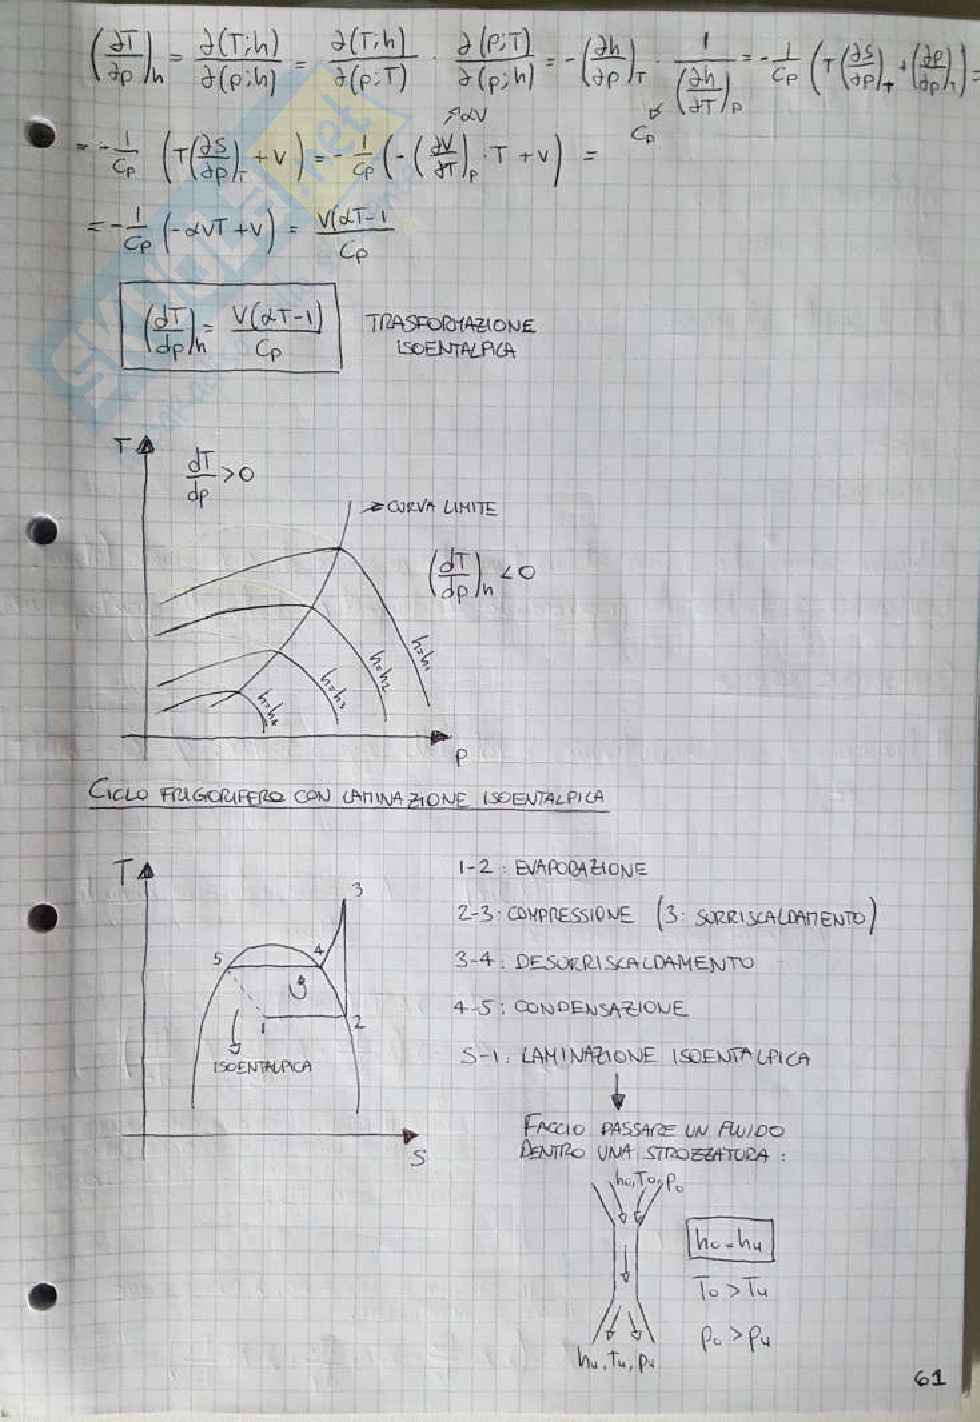 (∂T/∂p)h = ∂(T;h)/∂(p;h) = ∂(T;h)/∂(p;T) · ∂(p;T)/∂(p;h) = -(∂h/∂p)T · 1/(∂h/∂T)p = -1/Cp (T(∂S/∂p)T + (∂p/∂p)T) =
Cp
αV
= -1/Cp (T(∂S/∂p)T + V) = -1/Cp (-(∂V/∂T)p · T + V) =
= -1/Cp (-αVT + V) = V(αT-1/Cp
(dT/dp)h = V(αT-1)/Cp
TRASFORMAZIONE
ISOENTALPICA
T
dT/dp > 0
CURVA LIMITE
(dT/dp)h < 0
h=h1
h=h2
h=h3
h=h4
p
CICLO FRIGORIFERO CON LAMINAZIONE ISOENTALPICA
T
3
5
4
1
2
ISOENTALPICA
S
1-2: EVAPORAZIONE
2-3: COMPRESSIONE (3: SORRISCALDAMENTO)
3-4: DESORRISCALDAMENTO
4-5: CONDENSAZIONE
5-1: LAMINAZIONE ISOENTALPICA
FACCIO PASSARE UN FLUIDO
DENTRO UNA STROZZATURA:
h0, T0, p0
h0 = hu
T0 > Tu
p0 > pu
hu, Tu, pu
61
SKUOLA.net